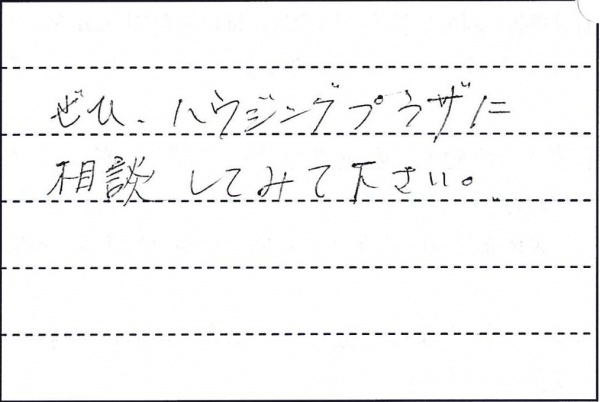 ぜひ、ハウジングプラザに
相談してみて下さい。